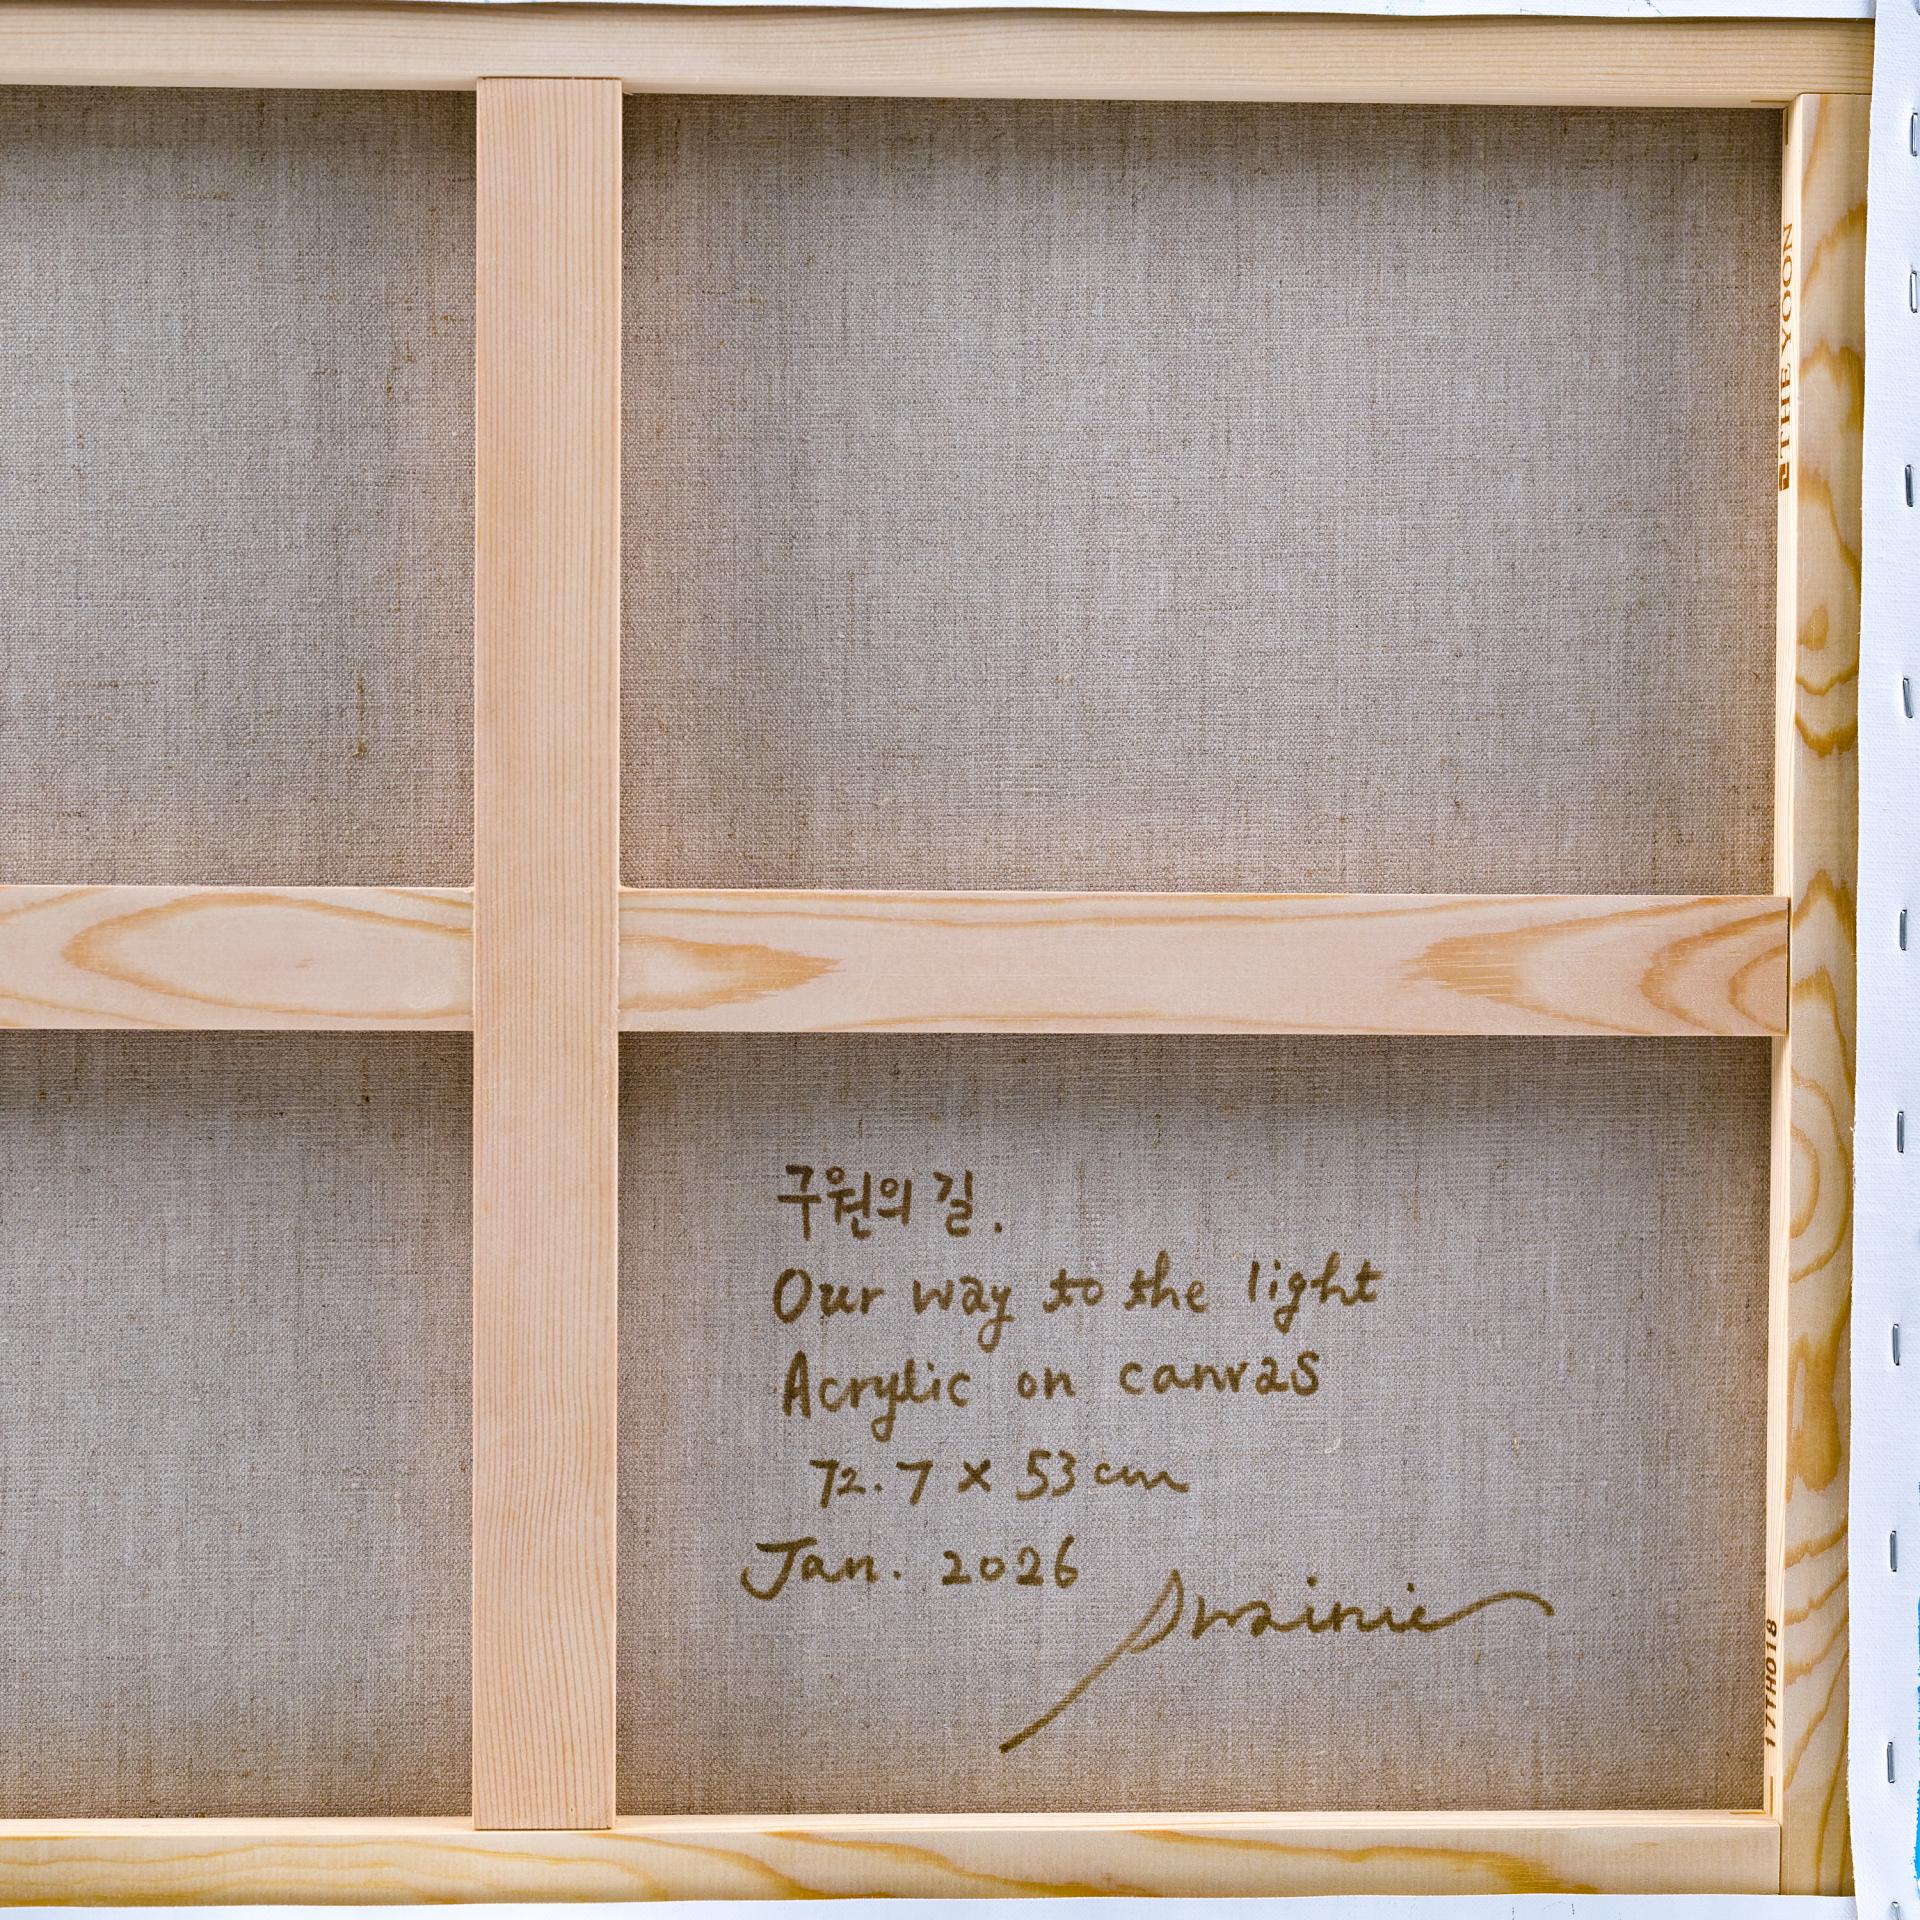 THE YOON
구원의 길.
Our way to the light
Acrylic on canvas
72.7 x 53 cm
Jan. 2026
17TH018